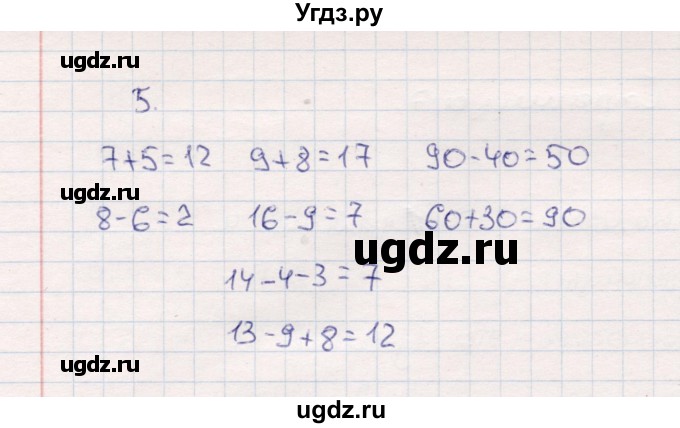 Угдз.ру
ugdz.ru
5.
7+5=12 9+8=17 90-40=50
8-6=2 16-9=7 60+30=90
ugdz.ru
14-4-3=7
13-9+8=12
ugdz.ru
ugdz.ru